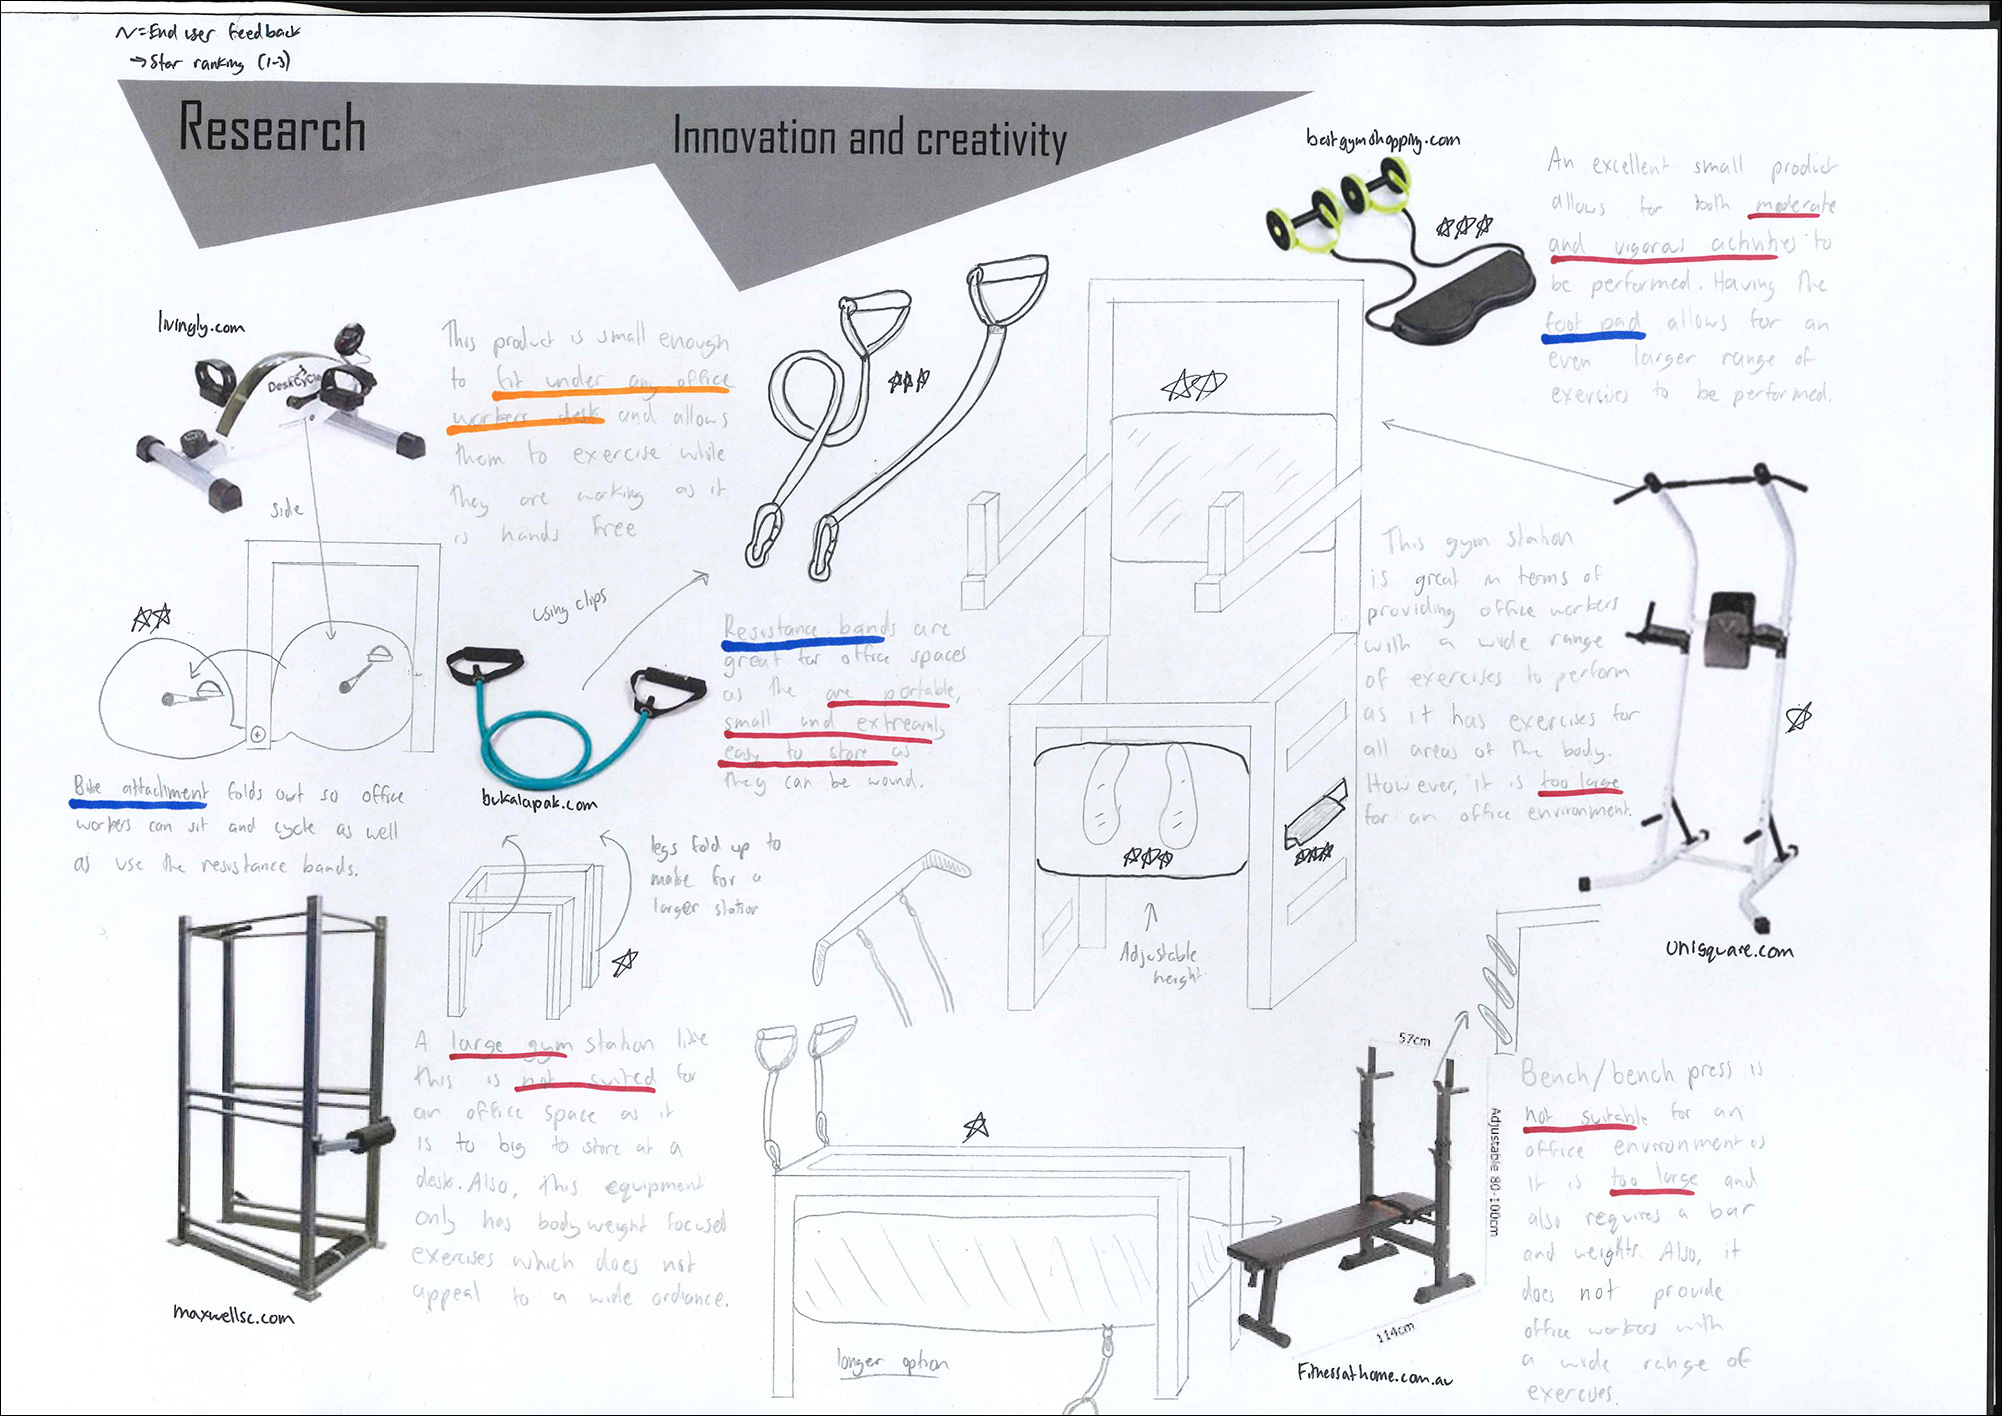 N=End user feedback
→Star ranking (1-3)
Research
Innovation and creativity
bestgymshopping.com
An excellent small product
allows for both moderate
and vigorus activities to
be performed. Having the
foot pad allows for an
even larger range of
exercises to be performed.
livingly.com
DeskCycle
This product is small enough
to fit under any office
workers desk and allows
them to exercise while
they are working as it
is hands free
side
using clips
Bike attachment folds out so office
workers can sit and cycle as well
as use the resistance bands.
bukalapak.com
Resistance bands are
great for office spaces
as the are portable,
small and extreamly
easy to store as
they can be wound.
This gym station
is great in terms of
providing office workers
with a wide range
of exercises to perform
as it has exercises for
all areas of the body.
However, it is too large
for an office environment.
unisquare.com
legs fold up to
make for a
larger station
Adjustable
height
maxwellsc.com
A large gym station like
this is not suited for
an office space as it
is to big to store at a
desk. Also, this equipment
only has bodyweight focused
exercises which does not
appeal to a wide ordiance.
longer option
57cm
Adjustable 80-100cm
114cm
Fitnessathome.com.au
Bench/bench press is
not suitable for an
office environment as
it is too large and
also requires a bar
and weights. Also, it
does not provide
office workers with
a wide range of
exercises.